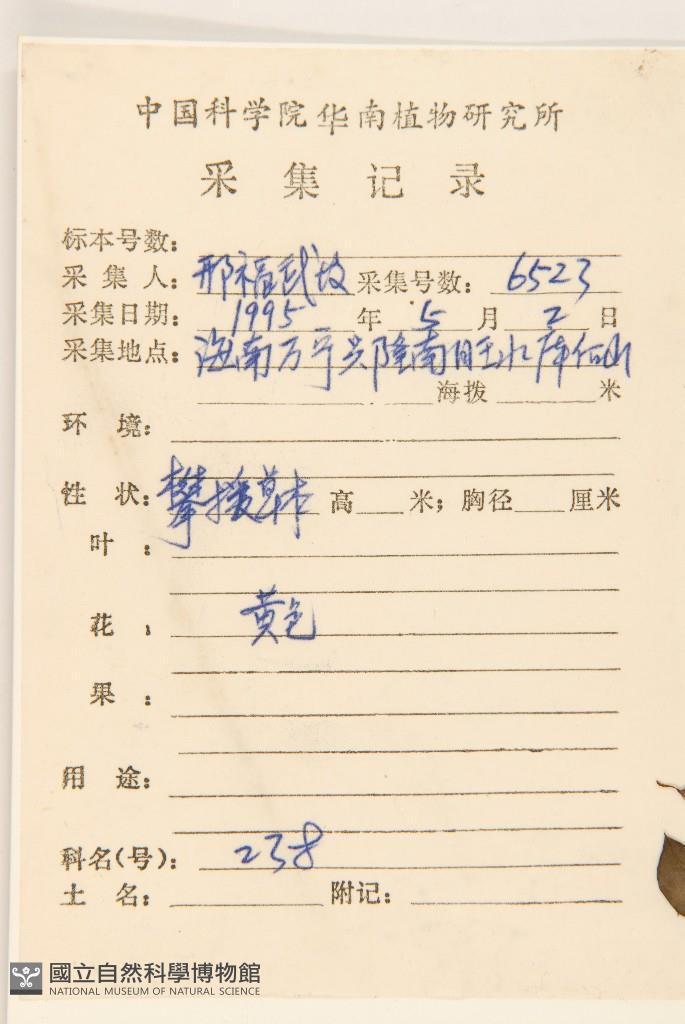 中国科学院华南植物研究所
采集记录
标本号数:
采集人: 邢福武 采集号数: 6523
采集日期: 1995 年 5 月 2 日
采集地点: 海南万宁兴隆南旺水库仙山
海拨 米
环境:
性状: 攀援草本 高 米; 胸径 厘米
叶:
花: 黄色
果:
用途:
科名(号): 238
土名: 附记:
國立自然科學博物館
NATIONAL MUSEUM OF NATURAL SCIENCE